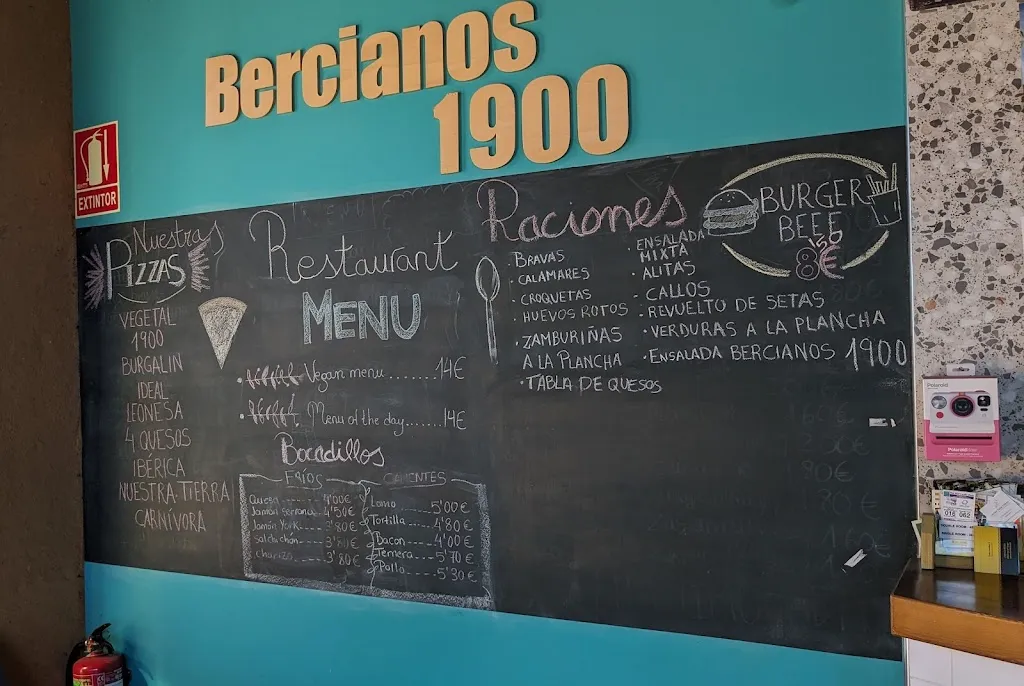 Bercianos
1900
EXTINTOR
Nuestras
PIZZAS
VEGETAL
1900
BURGALIN
IDEAL
LEONESA
4 QUESOS
IBÉRICA
NUESTRA TIERRA
CARNÍVORA
Restaurant
MENU
Vegan menu........14€
Menu of the day.......14€
Bocadillos
FRÍOS
Queso ------- 4'00€
Jamón Serrano 4'50€
Jamón York -- 3'80€
Salchichón --- 3'80€
chorizo ---- 3'80€
CALIENTES
Lomo ------ 5'00€
Tortilla ---- 4'80€
Bacon ---- 4'00€
Ternera --- 5'70€
Pollo ---- 5'30€
Raciones
· BRAVAS
· CALAMARES
· CROQUETAS
· HUEVOS ROTOS
· ZAMBURIÑAS
A LA PLANCHA
· TABLA DE QUESOS
· ENSALADA
MIXTA
· ALITAS
· CALLOS
· REVUELTO DE SETAS
· VERDURAS A LA PLANCHA
· ENSALADA BERCIANOS 1900
BURGER
BEEF
8'50€
Polaroid